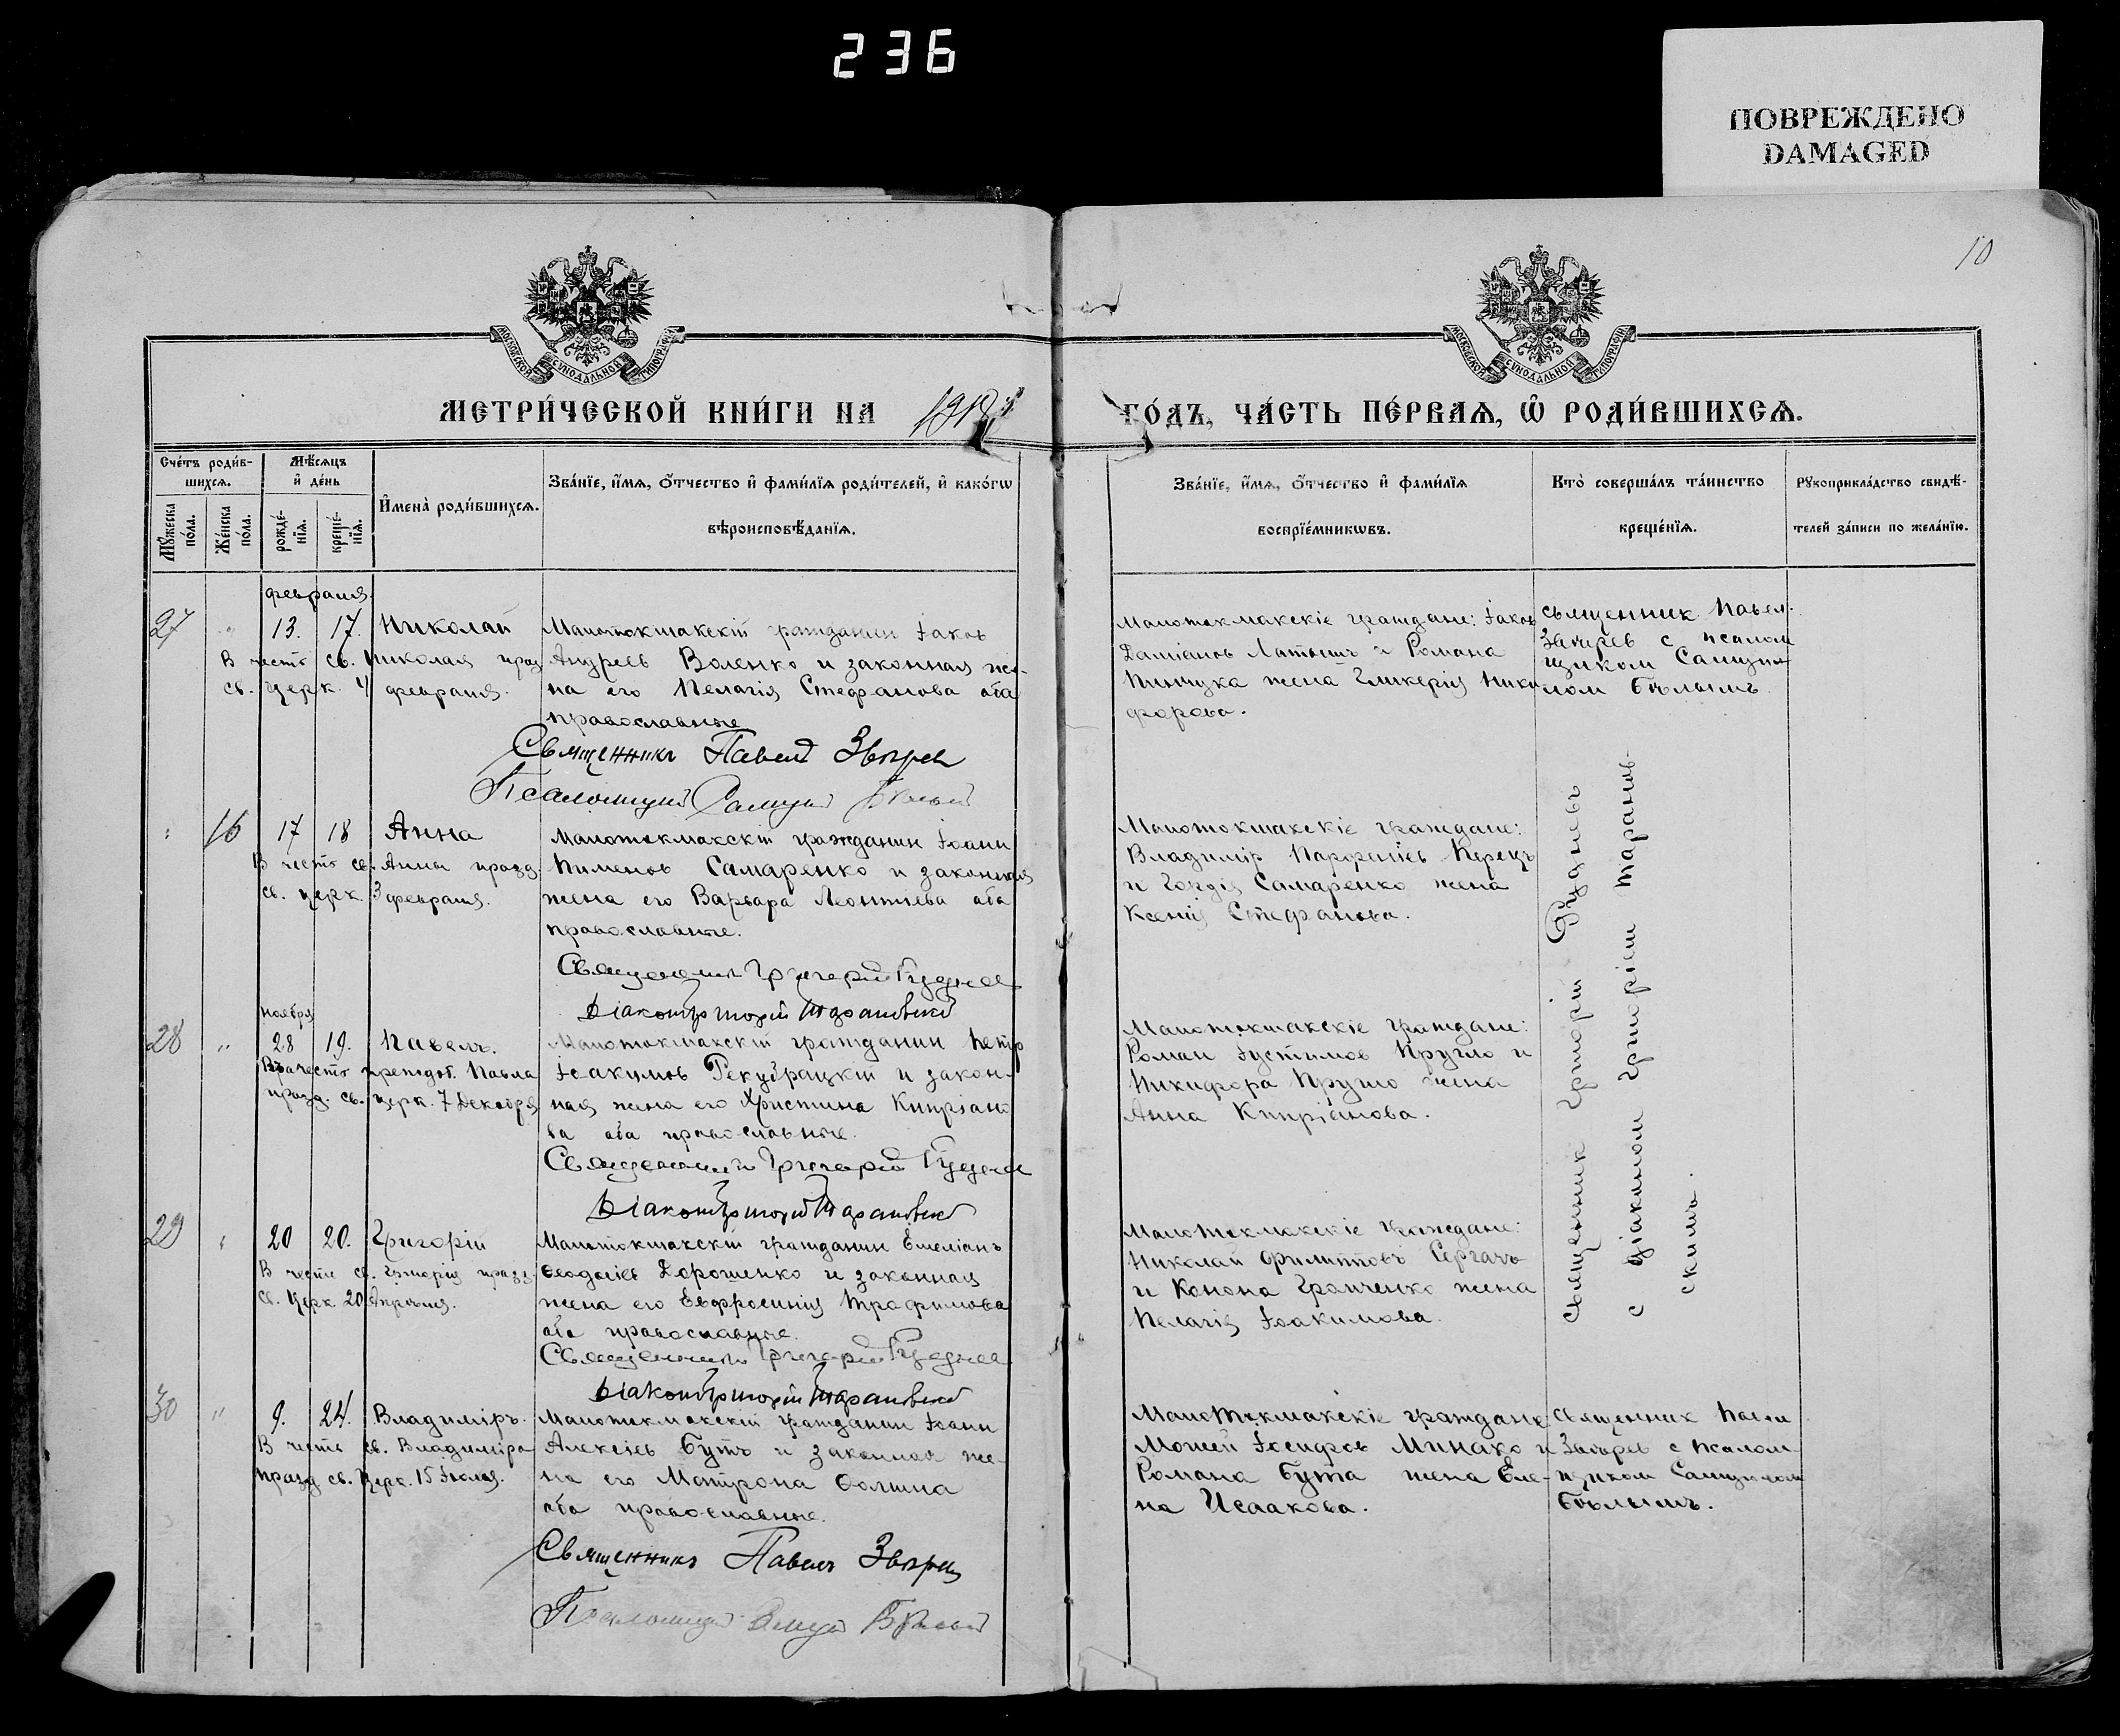 236
ПОВРЕЖДЕНО
DAMAGED
10
МОСКОВСКОЙ СѴНОДАЛЬНОЙ ТИПОГРАФІИ
МОСКОВСКОЙ СѴНОДАЛЬНОЙ ТИПОГРАФІИ
МЕТРИ́ЧЕСКОЙ КНИ́ГИ НА
ГО́ДЪ, ЧА́СТЬ ПЕ́РВАЯ, Ѡ҆ РОДИ́ВШИХСЯ.
Сче́тъ роди́в-
шихся.
Мꙋ́жеска
по́ла.
Же́нска
по́ла.
Мѣ́сяцъ
и҆ де́нь
рожде́-
нїя.
креще́-
нїя.
И҆мена̀ роди́вшихся.
Зва́нїе, и҆́мя, ѻ҆́тчество и҆ фами́лїя роди́телей, и҆ како́гѡ
вѣроисповѣ́данїя.
Зва́нїе, и҆́мя, ѻ҆́тчество и҆ фами́лїя
воспрїе́мникѡвъ.
Кто̀ соверша́лъ та́инство
креще́нїя.
Рꙋкоприкла́дство свидѣ́-
телей за́писи по жела́нїю.
февраля.
27 " 13. 17. Николай
В честь св. Николая праз
св. церк. 4 февраля.
Малотокмакскій гражданин Іаков
Андреев Воленко и законная же-
на его Пелагія Стефанова оба
православные
Священникъ Павел Зверев
Псаломщик Самуил Белый
Малотокмакские граждане: Іаков
Даміанов Латыш и Романа
Пинчука жена Гликерія Ники
форова.
священник Павел
Зверев с псалом
щиком Самуи
лом Бѣлымъ.
16 17 18 Анна
В честь св. Анны празд.
св. церк. 3 февраля.
Малотокмакскій гражданин Іоанн
Пименов Самаренко и законная
жена его Варвара Леонтиева оба
православные.
Священник Григорій Руднев
Діакон Григорій Тарановский
Малотокмакскіе граждане:
Владимір Парфеніев Перецъ
и Гордія Самаренко жена
Ксенія Стефанова.
Священник Григорій Рудневъ
с діаконом Григоріем Таранов-
скимъ.
ноября
28 " 28 19. Павелъ.
В честь преподоб. Павла
празд. св. церк. 7 Декабря
Малотокмакскій гражданин Петр
Іоакимов Рекубрацкій и закон-
ная жена его Христина Кипріано
ва оба православные.
Священник Григорій Руднев
Діакон Григорій Тарановский
Малотокмакскіе граждане:
Роман Іустимов Кругло и
Никифора Кругло жена
Анна Кипріанова.
29 20 20. Григорій
В честь св. Григорія празд
св. церк. 20 Апрѣля.
Малотокмакскій гражданин Емеліанъ
Ѳеодосіев Дорошенко и законная
жена его Евфросинія Трофимова
оба православные.
Священник Григорій Руднев
Діакон Григорій Тарановский
Малотокмакскіе граждане:
Николай Филипповъ Сергачъ
и Конона Гранченко жена
Пелагія Іоакимова.
30 " 9. 24. Владиміръ.
В честь св. Владиміра
празд св. церк. 15 Іюля.
Малотокмакскій гражданин Іоанн
Алексіев Бутъ и законная же-
на его Матрона Ѳомина
оба православные.
Священникъ Павелъ Зверев
Псаломщик Самуил Белый
Малотокмакскіе граждане
Моисей Іосифов Минако и
Романа Бута жена Еле-
на Исаакова.
Священник Павел
Зверев с псалом-
щиком Самуилом
Бѣлымъ.